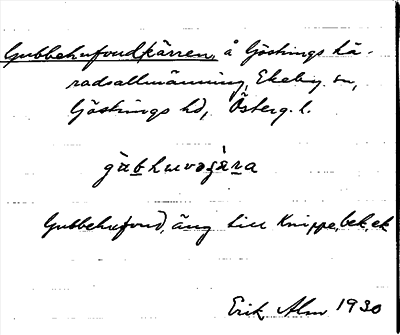 Gubbehuvudkärren, å Göstrings hä-
radsallmänning, Ekeby sn,
Göstrings hd, Österg. l.
Gubbehuvud, äng till Knippe, bek. ek
Erik Alm 1930